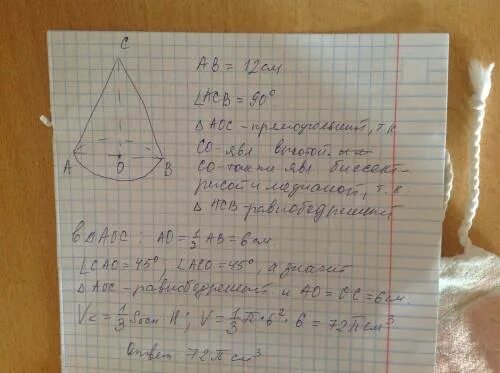 C
A O B
AB = 12 см
∠ACB = 90°
△AOC – прямоугольный, т.к.
CO – явл. высотой.
CO также явл. биссект-
рисой и медианой, т.к.
△ACB – равнобедренный
в △AOC: AO = 1/2 AB = 6 см.
∠CAO = 45°, ∠ACO = 45°, а значит
△AOC – равнобедренный и AO = OC = 6 см.
Vк = 1/3 Sосн H; V = 1/3 π · 6² · 6 = 72π см³
Ответ 72π см³